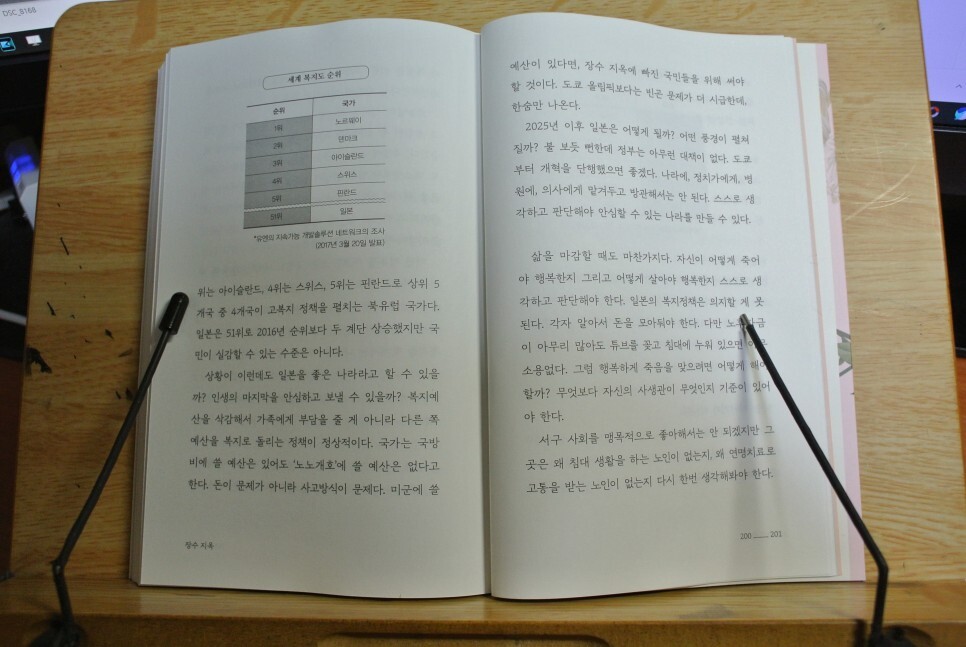 DSC_8168
세계 복지도 순위
순위 국가
1위 노르웨이
2위 덴마크
3위 아이슬란드
4위 스위스
5위 핀란드
51위 일본
*유엔의 지속가능 개발솔루션 네트워크의 조사
(2017년 3월 20일 발표)
위는 아이슬란드, 4위는 스위스, 5위는 핀란드로 상위 5
개국 중 4개국이 고복지 정책을 펼치는 북유럽 국가다.
일본은 51위로 2016년 순위보다 두 계단 상승했지만 국
민이 실감할 수 있는 수준은 아니다.
상황이 이런데도 일본을 좋은 나라라고 할 수 있을
까? 인생의 마지막을 안심하고 보낼 수 있을까? 복지예
산을 삭감해서 가족에게 부담을 줄 게 아니라 다른 쪽
예산을 복지로 돌리는 정책이 정상적이다. 국가는 국방
비에 쓸 예산은 있어도 ‘노노개호’에 쓸 예산은 없다고
한다. 돈이 문제가 아니라 사고방식이 문제다. 미군에 쓸
장수 지옥
예산이 있다면, 장수 지옥에 빠진 국민들을 위해 써야
할 것이다. 도쿄 올림픽보다는 빈곤 문제가 더 시급한데,
한숨만 나온다.
2025년 이후 일본은 어떻게 될까? 어떤 풍경이 펼쳐
질까? 불 보듯 뻔한데 정부는 아무런 대책이 없다. 도쿄
부터 개혁을 단행했으면 좋겠다. 나라에, 정치가에게, 병
원에, 의사에게 맡겨두고 방관해서는 안 된다. 스스로 생
각하고 판단해야 안심할 수 있는 나라를 만들 수 있다.
삶을 마감할 때도 마찬가지다. 자신이 어떻게 죽어
야 행복한지 그리고 어떻게 살아야 행복한지 스스로 생
각하고 판단해야 한다. 일본의 복지정책은 의지할 게 못
된다. 각자 알아서 돈을 모아둬야 한다. 다만
이 아무리 많아도 튜브를 꽂고 침대에 누워 있으면
소용없다. 그럼 행복하게 죽음을 맞으려면 어떻게 해야
할까? 무엇보다 자신의 사생관이 무엇인지 기준이 있어
야 한다.
서구 사회를 맹목적으로 좋아해서는 안 되겠지만 그
곳은 왜 침대 생활을 하는 노인이 없는지, 왜 연명치료로
고통을 받는 노인이 없는지 다시 한번 생각해봐야 한다.
200 201